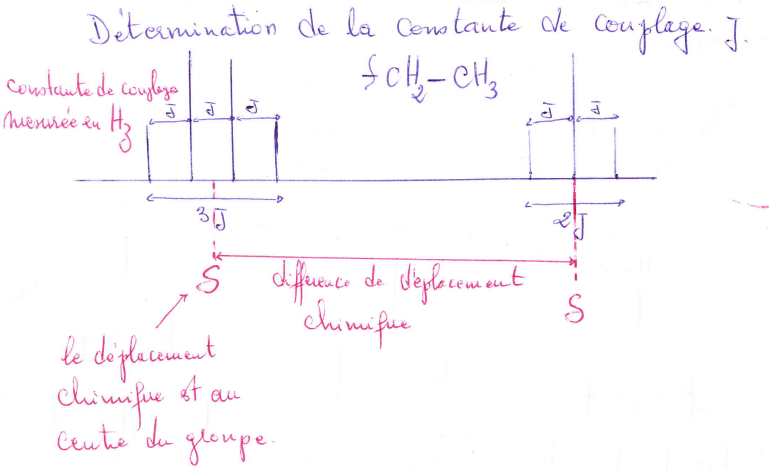 Détermination de la constante de couplage. J.
constante de couplage
mesurée en Hz
CH2–CH3
J J J
J J
3J
2J
δ
différence de déplacement
chimique
δ
le déplacement
chimique est au
centre du groupe.